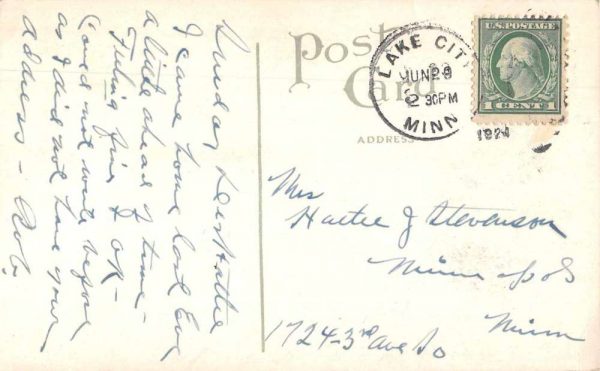 Sunday
Dear Hattie
I came home last Eve
a little ahead of time -
Feeling fine & OK -
Could not write before
as I did not have your
address - Rob.
Post
Card
ADDRESS
LAKE CITY
JUN 29
2 30PM
MINN
1921
U.S. POSTAGE
1 CENT 1
Mrs
Hattie J Stevenson
Minneapols
Minn
1724-3rd Ave So